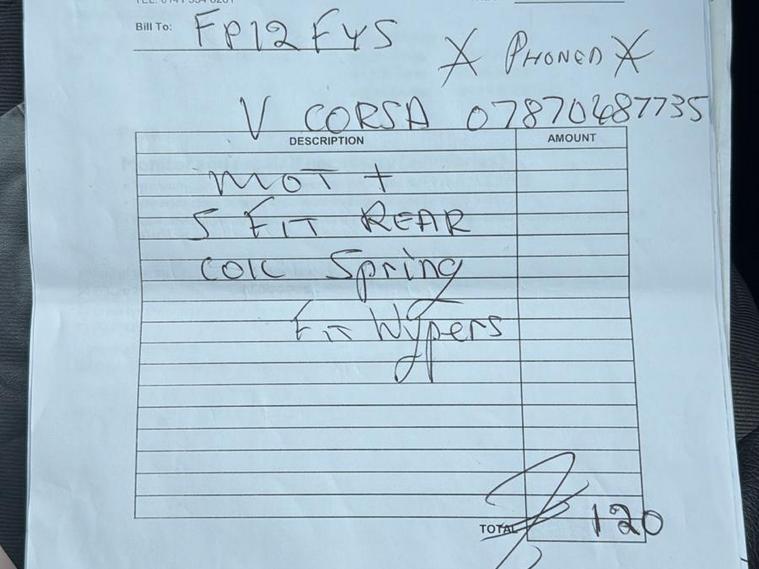 Bill To: FP12 FYS
X PHONED X
V CORSA 07870487735
DESCRIPTION AMOUNT
MOT +
S FIT REAR
COIL Spring
FIT Wypers
TOTAL 120